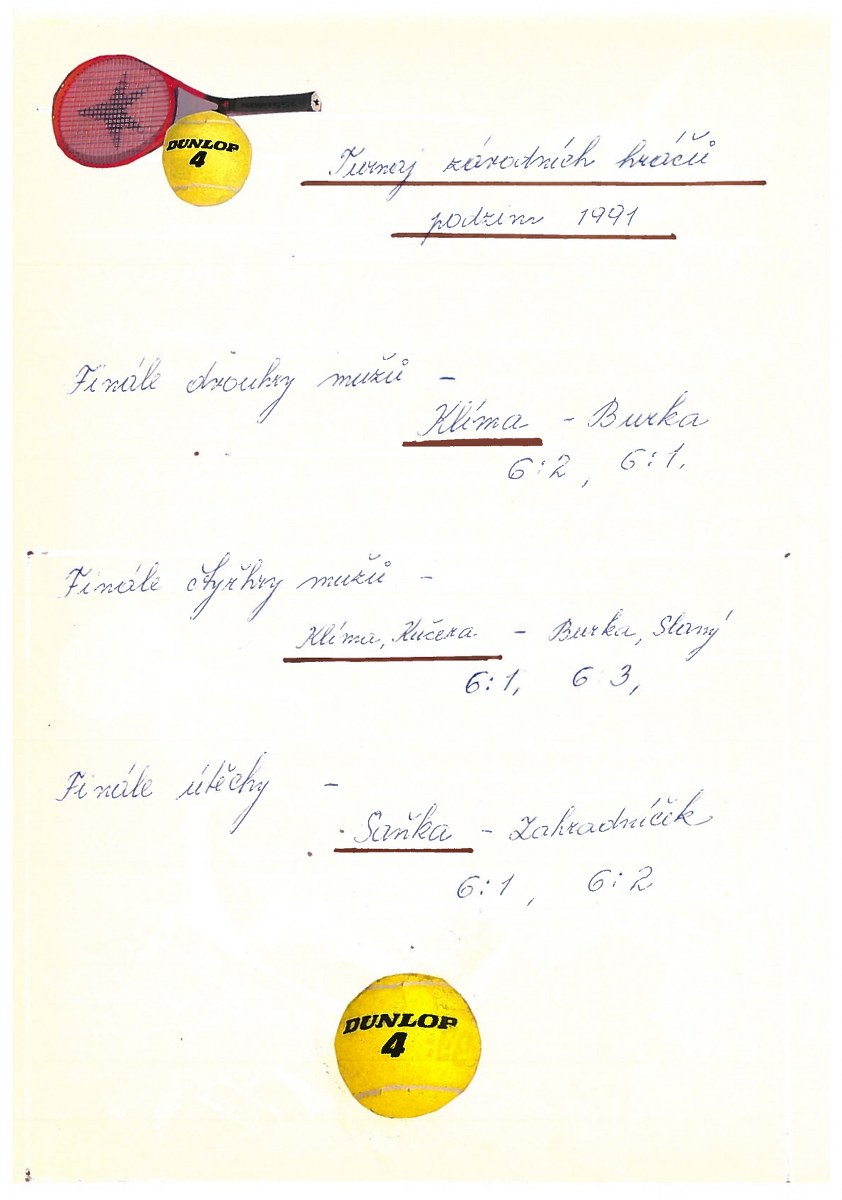 DUNLOP
4
Turnaj závodních hráčů
podzim 1991
Finále dvouhry mužů -
Klíma - Burka
6:2, 6:1.
Finále čtyřhry mužů -
Klíma, Kučera - Burka, Slaný
6:1, 6:3,
Finále útěchy -
Saňka - Zahradníček
6:1, 6:2
DUNLOP
4